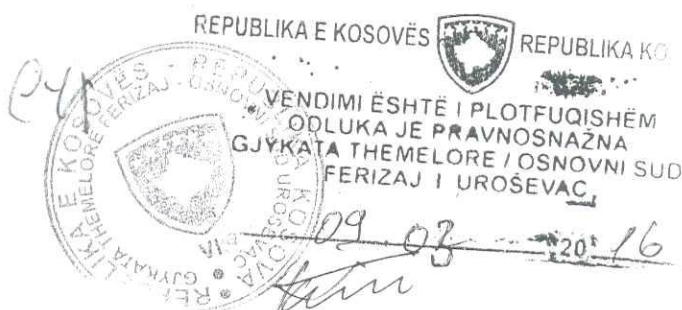 REPUBLIKA E KOSOVËS REPUBLIKA KO
VENDIMI ËSHTË I PLOTFUQISHËM
ODLUKA JE PRAVNOSNAŽNA
GJYKATA THEMELORE / OSNOVNI SUD
FERIZAJ I UROŠEVAC
09.03 2016
KOSOVËS - REPUBLIKA KOSOVA
GJYKATA THEMELORE FERIZAJ - OSNOVNI SUD UROSEVAC